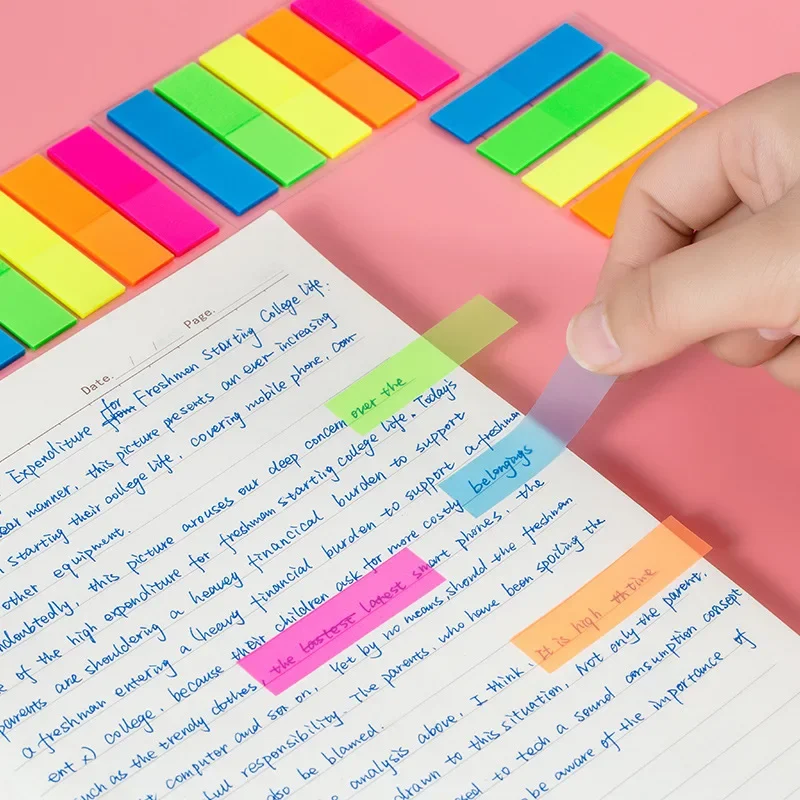 Date. / / Page.
Expenditure for Freshmen Starting College life.
ear manner, this picture presents an ever-increasing
starting their college life, covering mobile phone, com-
other equipment.
ndoubtedly, this picture arouses our deep concern over the
e of the high expenditure for freshmen starting college life. Today's
parents are shouldering a heavy financical burden to support
a freshman entering a (heavy financial burden to support a freshman
ent x) college, because their children ask for more costly belongings
such as the trendy clothes, the lastest latest smart phones, the
t computer and son on. Yet by no means, should the freshman
full responsibility. The parents, who have been spoiling the
also be blamed.
e analysis above, I think, It is high th time
drawn to this situation. Not only the parent,
sed to tech a sound consumption consept
be aware of the importance of